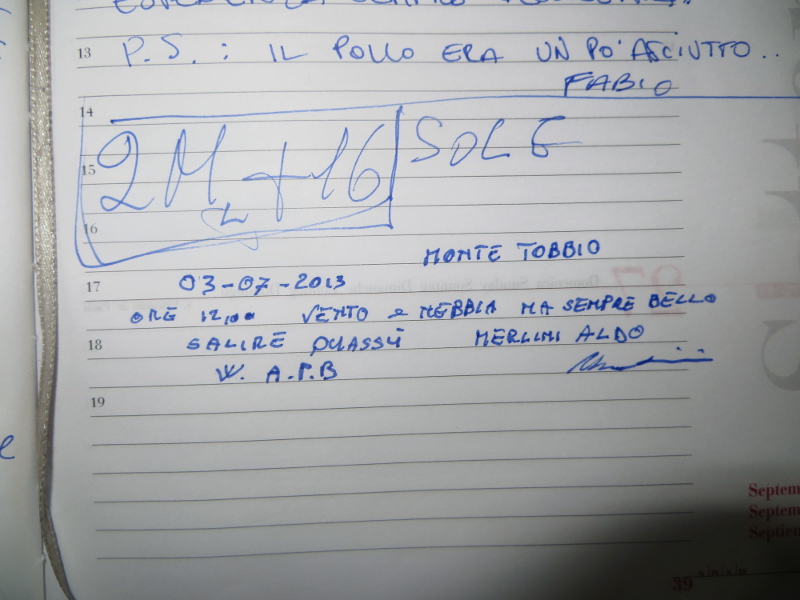 13 P.S.: IL POLLO ERA UN PO' ASCIUTTO..
FABIO
14
15 2M2+16 SOLE
16
MONTE TOBBIO
17 03-07-2013
ORE 12,00 VENTO e NEBBIA MA SEMPRE BELLO
18 SALIRE QUASSÙ MERLINI ALDO
W. A.P.B
19
Septem
Septem
Septien
39